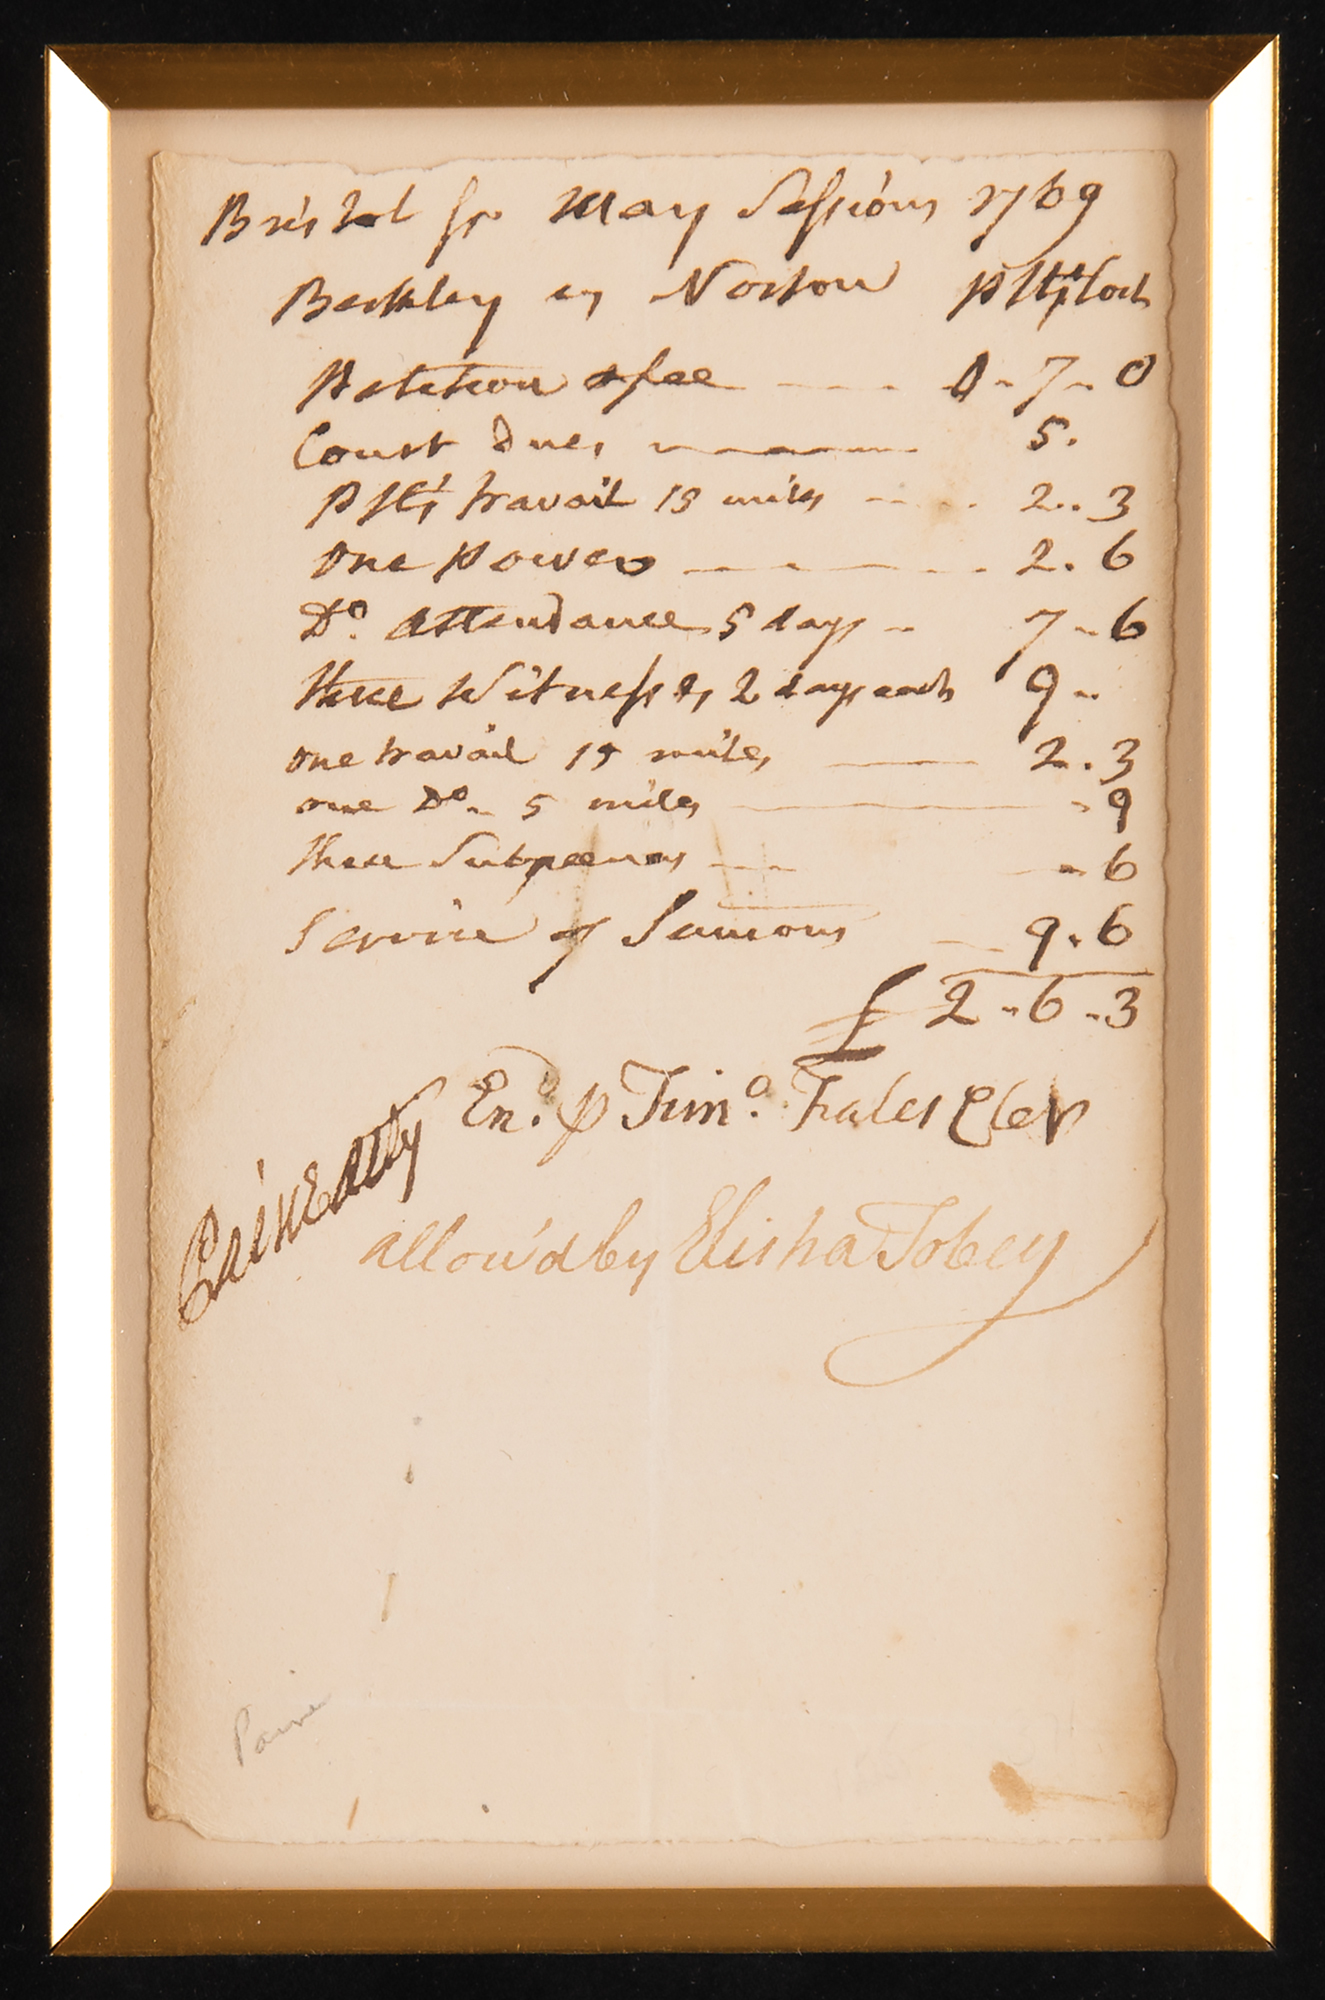 Bristol ss May Sessions 1769
Berkley vs Norton Pltfs Cost
Petition & fee 0-7-0
Court Dues 5.
Pltfs travail 15 miles 2..3
one power 2.6
Do. attendance 5 days 7-6
three Witnesses, 2 days each 9-
one travail 15 miles 2.3
one Do. 5 miles -9
three Subpoenas -6
Service of Sumons 9.6
£ 2-6-3
Exd. p Timo. Fales Cler
Paine Atty
allow'd by Elisha Tobey
Paine